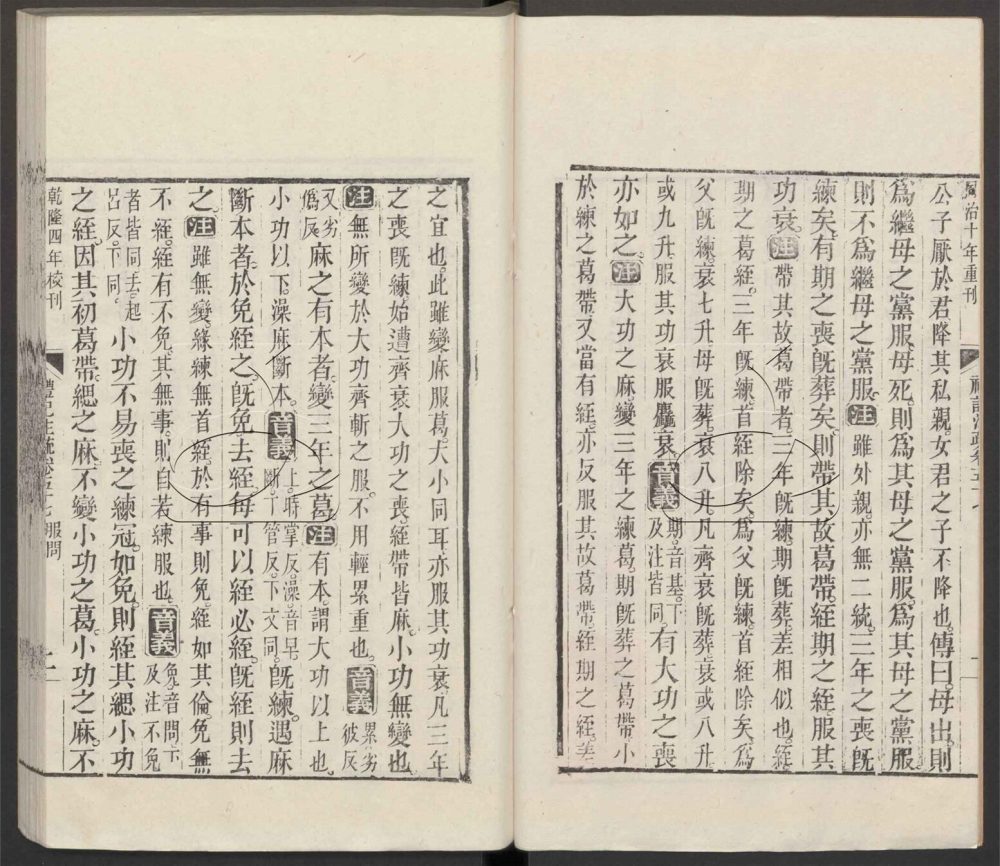 同治十年重刊
公子厭於君降其私親女君之子不降也傳曰母出則
爲繼母之黨服母死則爲其母之黨服爲其母之黨服
則不爲繼母之黨服注雖外親亦無二統三年之喪旣
練矣有期之喪旣葬矣則帶其故葛帶絰期之絰服其
功衰注帶其故葛帶者三年旣練期旣葬差相似也絰
期之葛絰三年旣練首絰除矣爲父旣練首絰除矣爲
父旣練衰七升母旣葬衰八升凡齊衰旣葬衰或八升
或九升服其功衰服麤衰音義期音基下及注皆同有大功之喪
亦如之注大功之麻變三年之練葛期旣葬之葛帶小
於練之葛帶又當有絰亦反服其故葛帶絰期之絰差
之宜也此雖變麻服葛大小同耳亦服其功衰凡三年
之喪旣練始遭齊衰大功之喪絰帶皆麻小功無變也
注無所變於大功齊斬之服不用輕累重也音義累劣彼反
又劣僞反麻之有本者變三年之葛注有本謂大功以上也
小功以下澡麻斷本音義上時掌反澡音早斷丁管反下文同旣練遇麻
斷本者於免絰之旣免去絰每可以絰必絰旣絰則去
之注雖無變緣練無首絰於有事則免絰如其倫免無
不絰絰有不免其無事則自若練服也音義免音問下及注不免
者皆同去起呂反下同小功不易喪之練冠如免則絰其緦小功
之絰因其初葛帶緦之麻不變小功之葛小功之麻不
乾隆四年校刊 服問